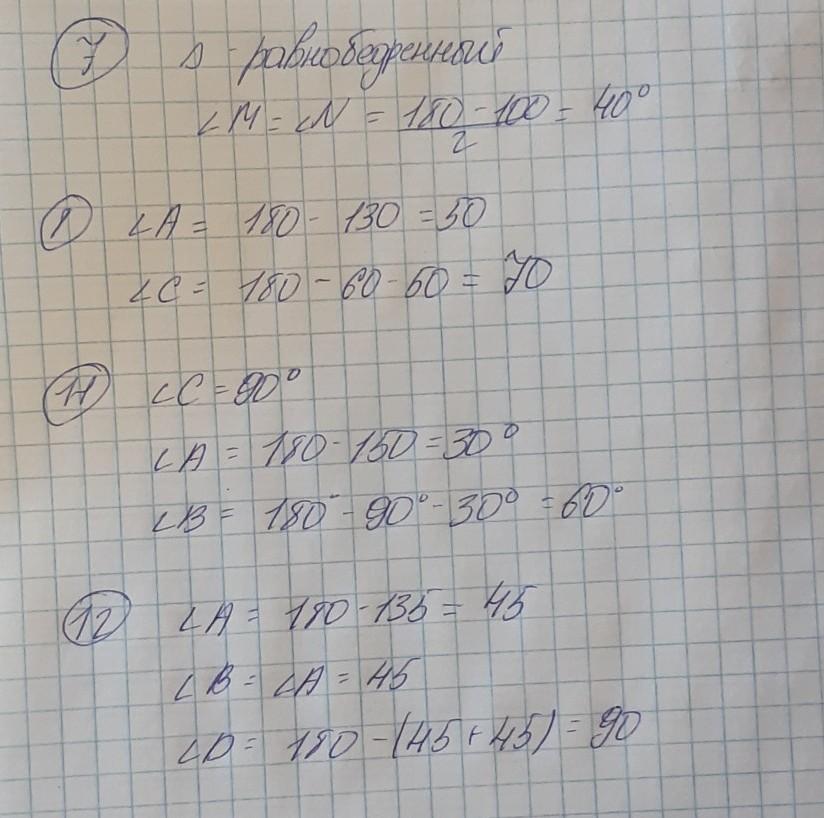 7 Δ - равнобедренный
∠M = ∠N = (180 - 100)/2 = 40°
8 ∠A = 180 - 130 = 50
∠C = 180 - 60 - 50 = 70
11 ∠C = 90°
∠A = 180 - 150 = 30°
∠B = 180° - 90° - 30° = 60°
12 ∠A = 180 - 135 = 45
∠B = ∠A = 45
∠D = 180 - (45 + 45) = 90